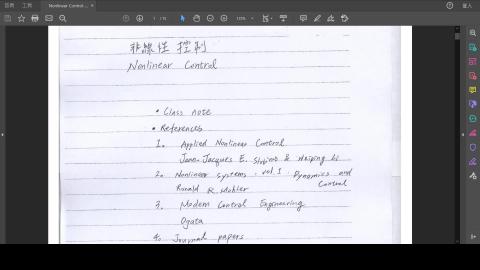 首頁 工具 Nonlinear Control ...
登入
非線性 控制
Nonlinear Control
• Class note
• References
1. Applied Nonlinear Control
Jean-Jacques E. Slotine & Weiping Li
2. Nonlinear Systems, vol. 1 Dynamics and Control
Ronald R. Mohler
3. Modern Control Engineering
Ogata
4. Journal papers